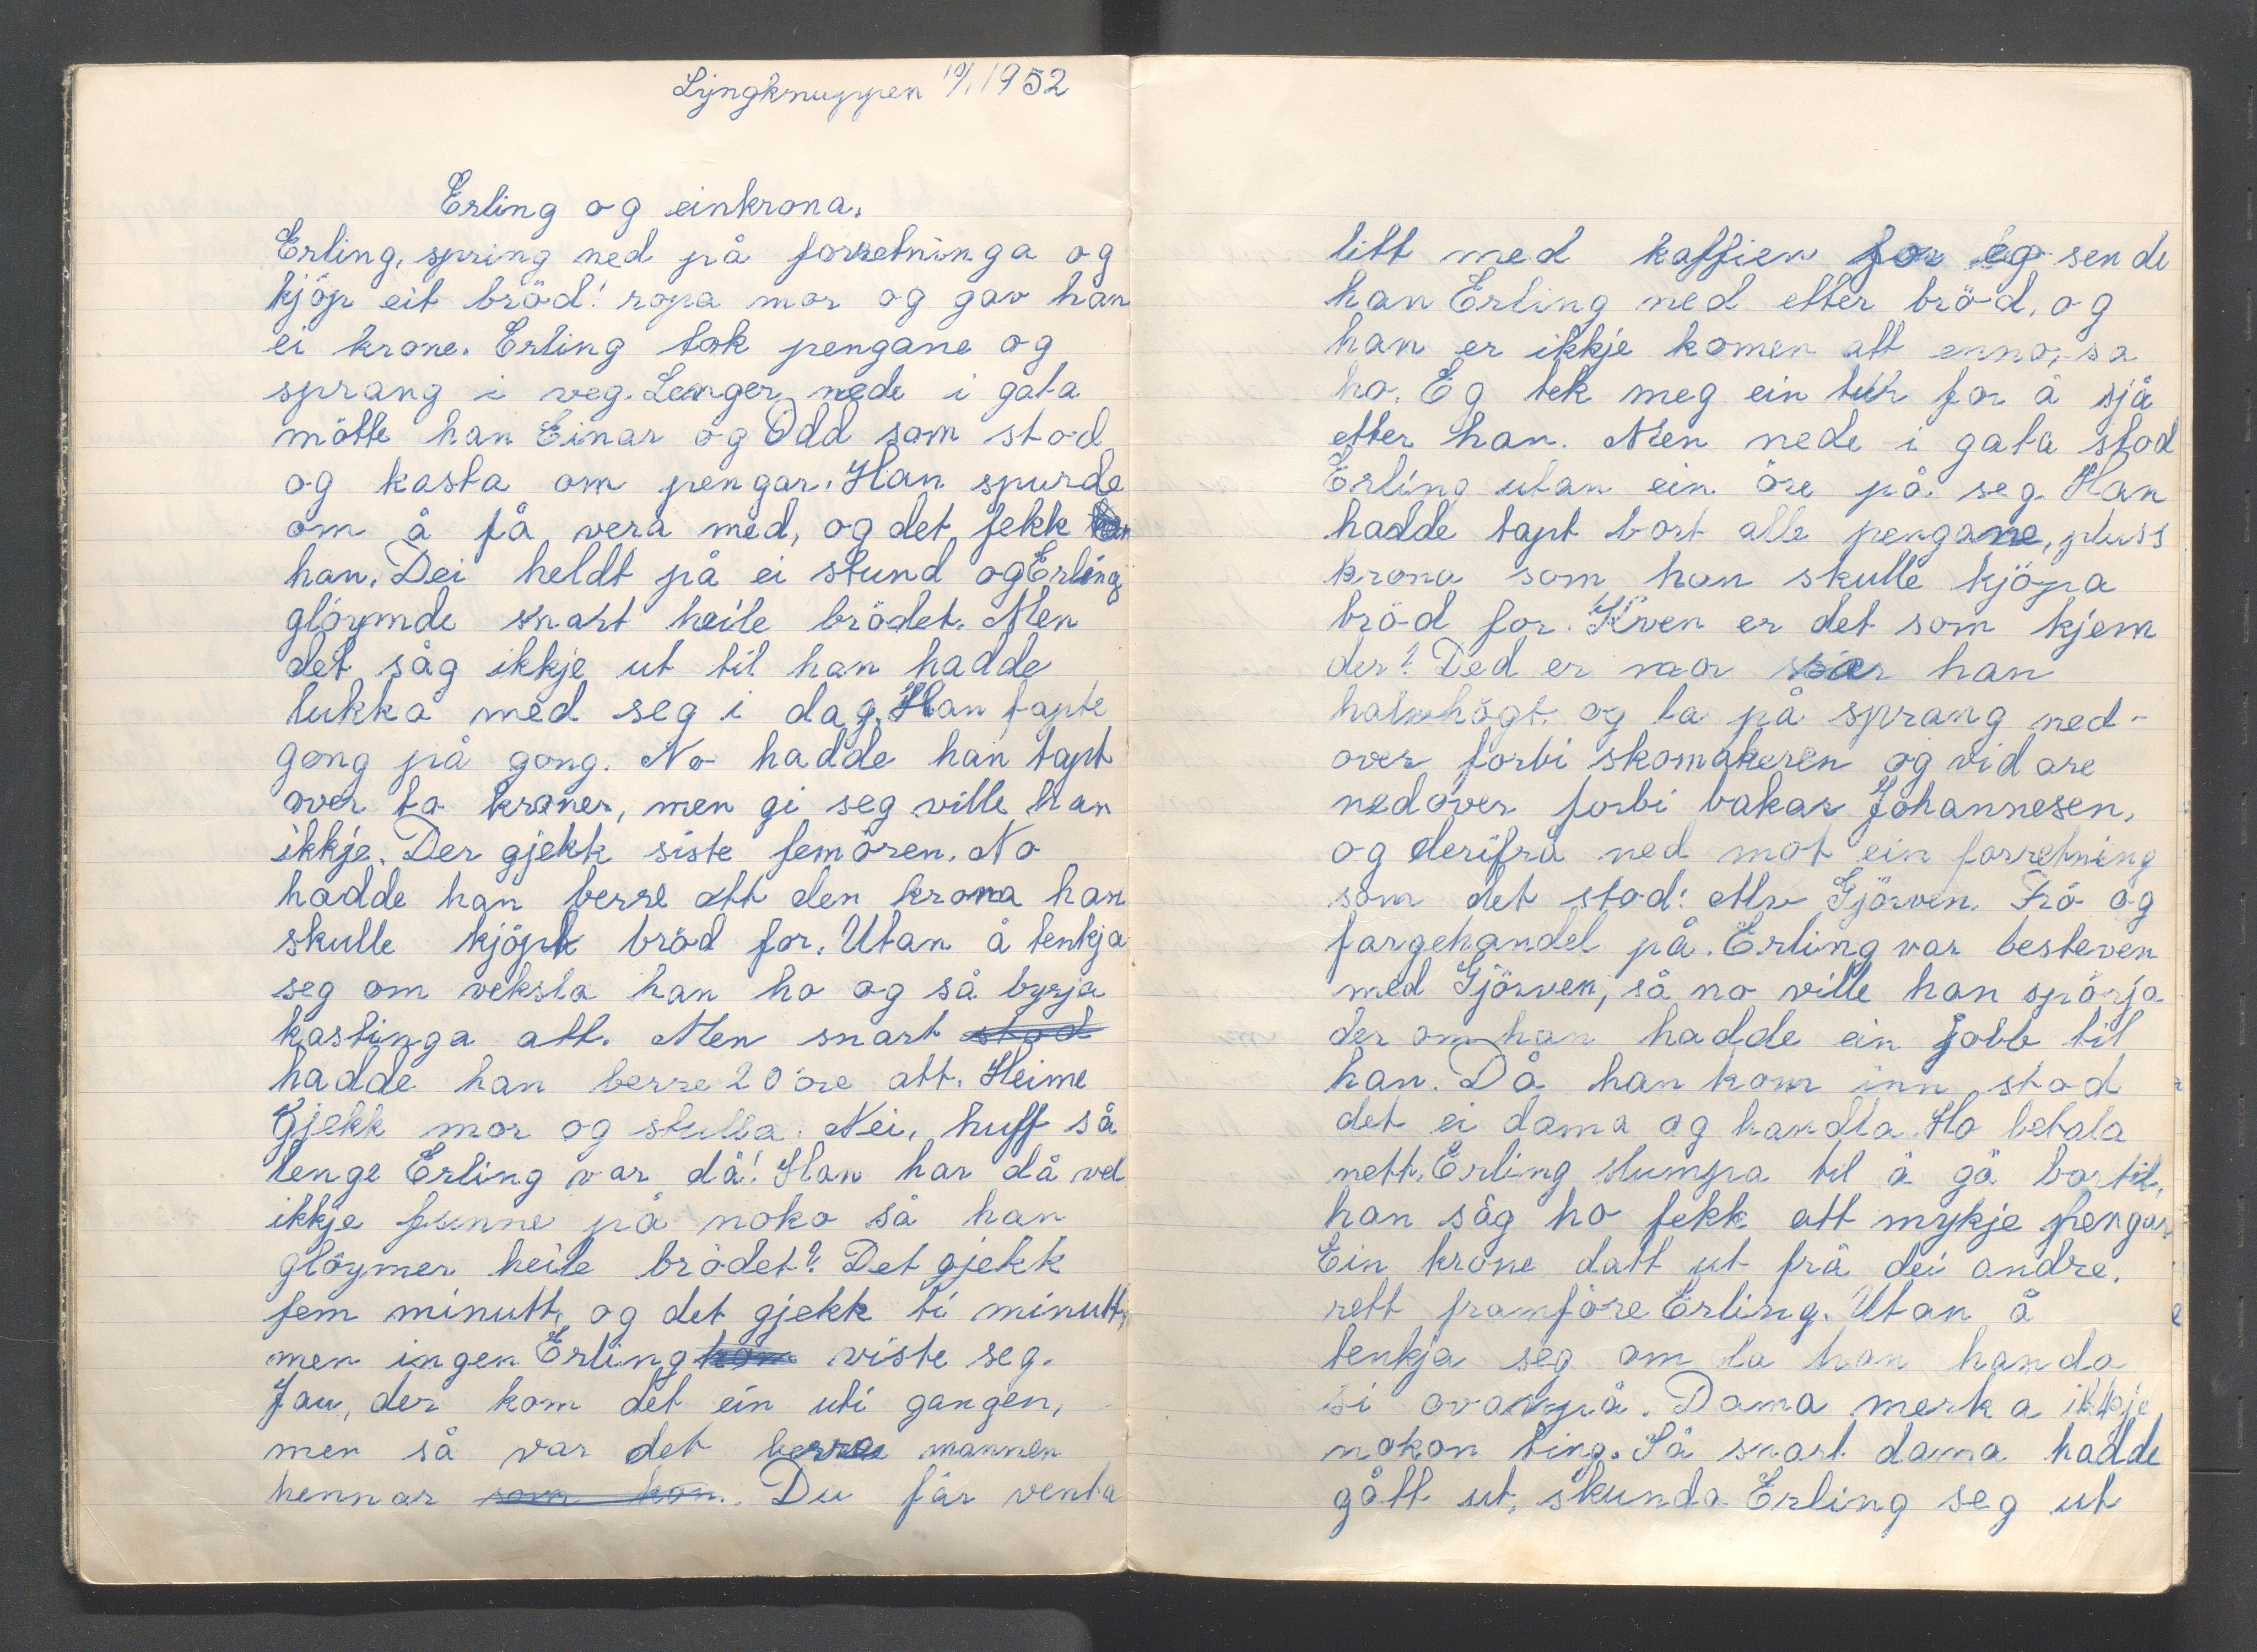 Lyngknuppen 10/1 1952
Erling og einkrona.
Erling, spring ned på forretninga og
kjöp eit bröd! ropa mor og gav han
ei krone. Erling tok pengane og
sprang i veg. Lenger nede i gata
mötte han Einar og Odd som stod
og kasta om pengar. Han spurde
om å få vera med, og det fekk
han. Dei heldt på ei stund og Erling
glöymde snart heile brödet. Men
det såg ikkje ut til han hadde
lukka med seg i dag. Han tapte
gong på gong. No hadde han tapt
over to kroner, men gi seg ville han
ikkje. Der gjekk siste femören. No
hadde han berre att den krona han
skulle kjöpt bröd for. Utan å tenkja
seg om veksla han ho og så byrja
kastinga att. Men snart stod
hadde han berre 20 öre att. Heime
gjekk mor og stulla. Nei, huff så
lenge Erling var då! Han har då vel
ikkje funne på noko så han
glöymer heile brödet? Det gjekk
fem minutt, og det gjekk ti minutt,
men ingen Erling kom viste seg.
Jau, der kom det ein uti gangen,
men så var det berre mannen
hennar som kom. Du får venta
litt med kaffien for eg sende
han Erling ned etter bröd, og
han er ikkje komen att enno, sa
ho. Eg tek meg ein tur for å sjå
etter han. Men nede i gata stod
Erling utan ein öre på seg. Han
hadde tapt bort alle pengane, pluss
krona som han skulle kjöpa
bröd for. Kven er det som kjem
der? Ded er mor sier han
halvhögt og la på sprang ned-
over forbi skomakeren og vidare
nedover forbi bakar Johannesen,
og derifrå ned mot ein forretning
som det stod: Alv Gjörven. Frö og
fargehandel på. Erling var besteven
med Gjörven, så no ville han spörja
der om han hadde ein jobb til
han. Då han kom inn stod
det ei dama og handla. Ho betala
nett. Erling slumpa til å gå bortil,
han såg ho fekk att mykje pengar.
Ein krone datt ut frå dei andre.
rett framföre Erling. Utan å
tenkja seg om la han handa
si ovanpå. Dama merka ikkje
nokon ting. Så snart dama hadde
gått ut, skunda Erling seg ut